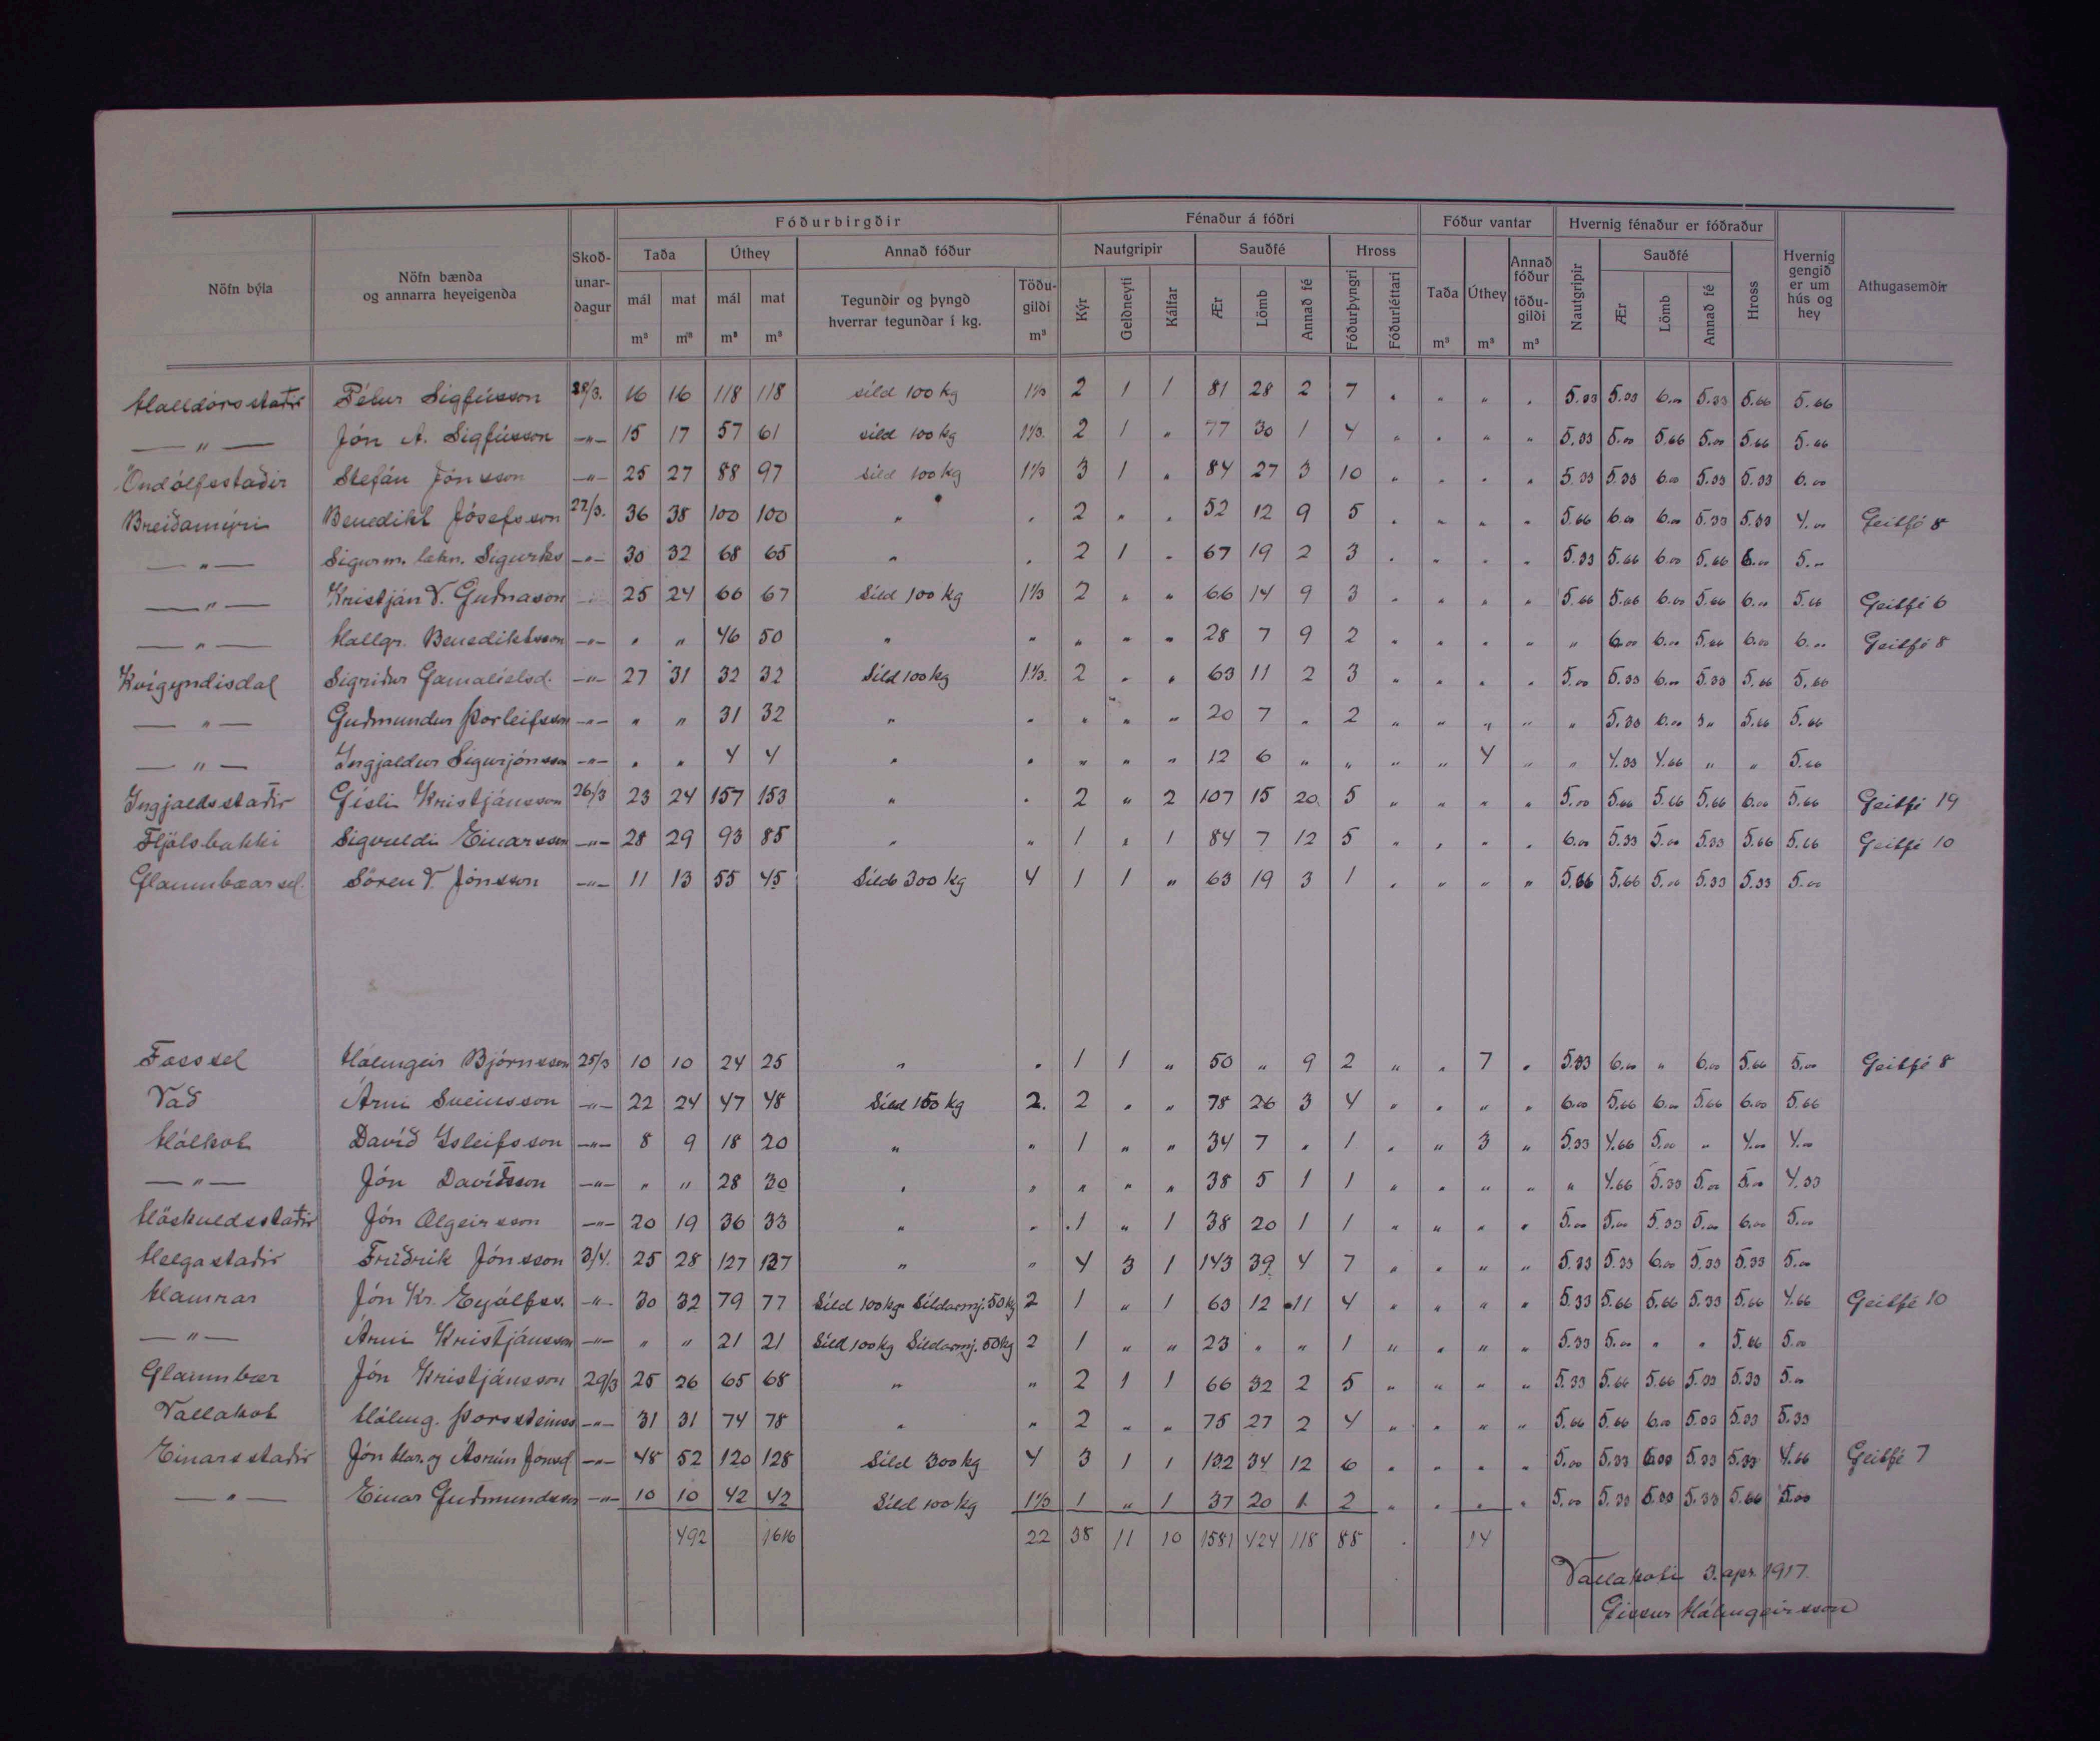 Fóðurbirgðir Fénaður á fóðri Fóður vantar Hvernig fénaður er fóðraður
Nöfn býla Nöfn bænda og annarra heyeigenda Skoðunardagur Taða Úthey Annað fóður Nautgripir Sauðfé Hross Taða Úthey Annað fóður töðugildi Nautgripir Sauðfé Hross Hvernig gengið er um hús og hey Athugasemdir
mál mat mál mat Tegundir og þyngd hverrar tegundar í kg. Töðugildi Kýr Geldneyti Kálfar Ær Lömb Annað fé Fóðurþyngri Fóðurléttari Ær Lömb Annað fé
m³ m³ m³ m³ m³ m³ m³ m³
Halldórsstaðir Pétur Sigfússon 28/3. 16 16 118 118 síld 100 kg 1⅓ 2 1 1 81 28 2 7 " " " " 5.33 5.33 6.00 5.33 5.66 5.66
—"— Jón A. Sigfússon —"— 15 17 57 61 síld 100 kg 1⅓. 2 1 " 77 30 1 4 " " " " 5.33 5.00 5.66 5.00 5.66 5.66
Öndólfsstaðir Stefán Jónsson —"— 25 27 88 97 síld 100 kg 1⅓ 3 1 " 84 27 3 10 " " " " 5.33 5.33 6.00 5.33 5.33 6.00
Breiðamýri Benedikt Jósefsson 27/3. 36 38 100 100 " " 2 " " 52 12 9 5 " " " " 5.66 6.00 6.00 5.33 5.33 4.00 Geitfé 8
—"— Sigurm. lækn. Sigurðss —"— 30 32 68 65 " " 2 1 " 67 19 2 3 " " " " 5.33 5.66 6.00 5.66 6.00 5.00
—"— Kristján V. Guðnason —"— 25 24 66 67 Síld 100 kg 1⅓ 2 " " 66 14 9 3 " " " " 5.66 5.66 6.00 5.66 6.00 5.66 Geitfé 6
—"— Hallgr. Benediktsson —"— " " 46 50 " " " " " 28 7 9 2 " " " " " 6.00 6.00 5.66 6.00 6.00 Geitfé 8
Kvígyndisdal Sigríður Gamalíelsd. —"— 27 31 32 32 Síld 100 kg 1⅓. 2 " " 63 11 2 3 " " " " 5.00 5.33 6.00 5.33 5.66 5.66
—"— Guðmundur Þorleifsson —"— " " 31 32 " " " " " 20 7 " 2 " " " " " 5.33 6.00 " 5.66 5.66
—"— Ingjaldur Sigurjónsson —"— " " 4 4 " " " " " 12 6 " " " " 4 " " 4.33 4.66 " " 5.66
Ingjaldsstaðir Gísli Kristjánsson 26/3 23 24 157 153 " " 2 " 2 107 15 20 5 " " " " 5.00 5.66 5.66 5.66 6.00 5.66 Geitfé 19
Fljótsbakki Sigvaldi Einarsson —"— 28 29 93 85 " " 1 " 1 84 7 12 5 " " " " 6.00 5.33 5.00 5.33 5.66 5.66 Geitfé 10
Glaumbæarsel. Sören V. Jónsson —"— 11 13 55 45 Síld 300 kg 4 1 1 " 63 19 3 1 " " " " 5.66 5.66 5.00 5.33 5.33 5.00
Fossel Hólmgeir Björnsson 25/3 10 10 24 25 " " 1 1 " 50 " 9 2 " " 7 " 5.33 6.00 " 6.00 5.66 5.00 Geitfé 8
Vað Árni Sveinsson —"— 22 24 47 48 Síld 150 kg 2. 2 " " 78 26 3 4 " " " " 6.00 5.66 6.00 5.66 6.00 5.66
Hólkot Davíð Ísleifsson —"— 8 9 18 20 " " 1 " " 34 7 " 1 " " 3 " 5.33 4.66 5.00 " 4.00 4.00
—"— Jón Davíðsson —"— " " 28 30 " " " " " 38 5 1 1 " " " " " 4.66 5.33 5.00 5.00 4.33
Höskuldsstaðir Jón Olgeirsson —"— 20 19 36 33 " " 1 " 1 38 20 1 1 " " " " 5.00 5.00 5.33 5.00 6.00 5.00
Helgastaðir Friðrik Jónsson 3/4. 25 28 127 137 " " 4 3 1 143 39 4 7 " " " " 5.33 5.33 6.00 5.33 5.33 5.00
Hamrar Jón Kr. Eyjólfss. —"— 30 32 79 77 Síld 100 kg Síldarmj. 50 kg 2 1 " 1 63 12 11 4 " " " " 5.33 5.66 5.66 5.33 5.66 4.66 Geitfé 10
—"— Árni Kristjánsson —"— " " 21 21 Síld 100 kg Síldarmj. 50 kg 2 1 " " 23 " " 1 " " " " 5.33 5.00 " " 5.66 5.00
Glaumbær Jón Kristjánsson 29/3 25 26 65 68 " " 2 1 1 66 32 2 5 " " " " 5.33 5.66 5.66 5.33 5.33 5.00
Vallakot Hólmg. Þorsteinss —"— 31 31 74 78 " " 2 " " 75 27 2 4 " " " " 5.66 5.66 6.00 5.33 5.33 5.33
Einarsstaðir Jón Har. og Ásrún Jónsd —"— 48 52 120 128 Síld 300 kg 4 3 1 1 132 34 12 6 " " " " 5.00 5.33 6.00 5.33 5.33 4.66 Geitfé 7
—"— Einar Guðmundsson —"— 10 10 42 42 Síld 100 kg 1⅓ 1 " 1 37 20 1 2 " " " " 5.00 5.33 6.00 5.33 5.66 5.00
492 1616 22 38 11 10 1581 424 118 88 14
Vallakoti 3. apr. 1917.
Gissur Hólmgeirsson